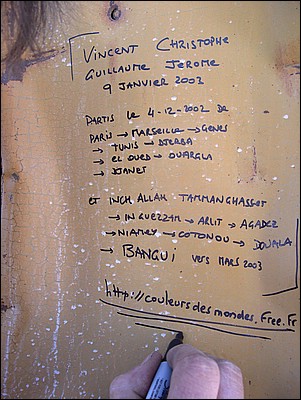 VINCENT CHRISTOPHE
GUILLAUME JEROME
9 JANVIER 2003
PARTIS LE 4-12-2002 DE
PARIS → MARSEILLE → GENES
→ TUNIS → DJERBA
→ EL OUED → OUARGLA
→ DJANET
ET INCH ALLAH TAMMANGHASSET
→ IN GUEZZAM → ARLIT → AGADEZ
→ NIAMEY → COTONOU → DOUALA
→ BANGUI VERS MARS 2003
http://couleursdesmondes.free.fr